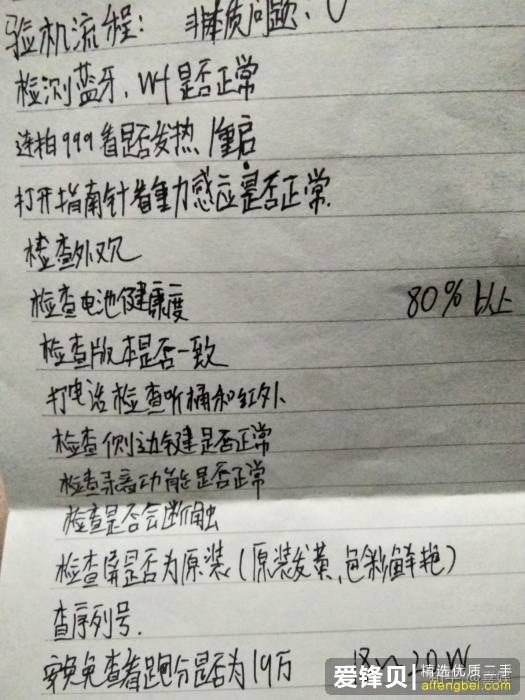 验机流程: 非体质问题,
检测蓝牙、Wf是否正常
连拍999看是否发热/重启
打开指南针看重力感应是否正常.
检查外观
检查电池健康度 80%以上
检查版本是否一致
打电话检查听桶和红外
检查侧边键是否正常
检查录音功能是否正常
检查是否会断触
检查屏是否为原装(原装发黄,色彩鲜艳)
查序列号.
安兔兔查看跑分是否为19万 18~20W
爱锋贝 精选优质二手
aifengbei.com